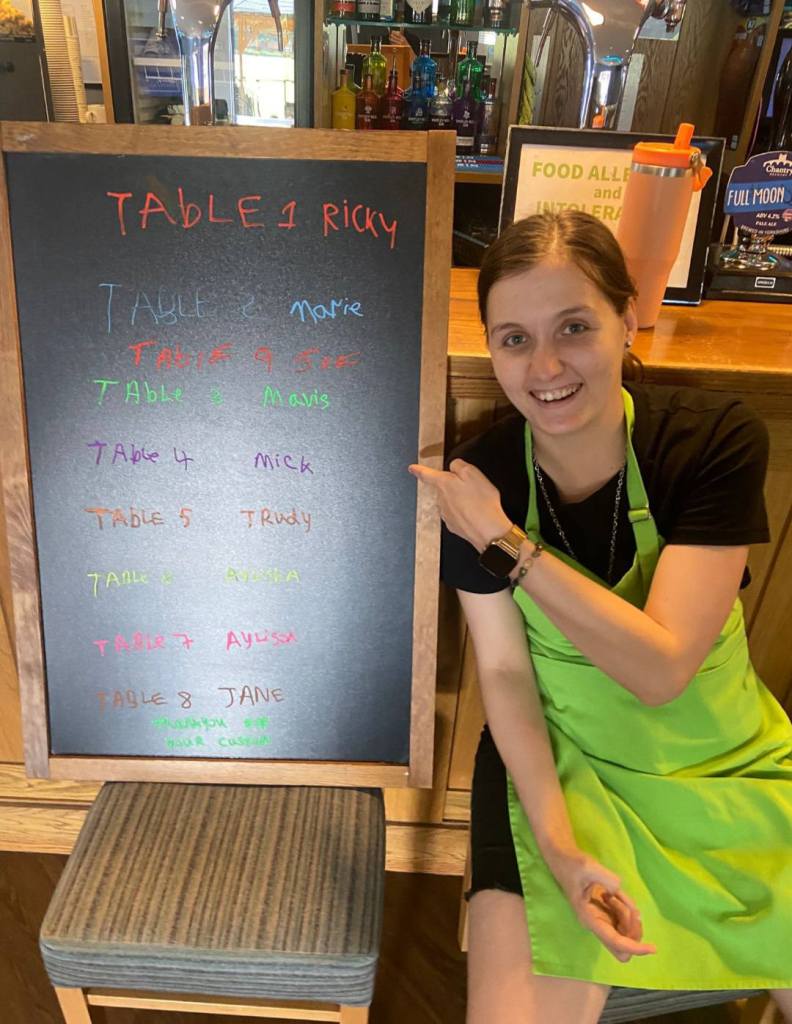 TAbLE 1 RICKy
TABLE 2 Marie
TAbLE 9 SUE
TAble 3 Mavis
TAble 4 MICK
TABLE 5 TRUdy
TABLE 6
TABLE 7 AylisoN
TABLE 8 JANE
thankyou
Your custom
FOOD ALLE
and
INTOLERA
Chantry
FULL MOON
ABV 4.2%
PALE ALE